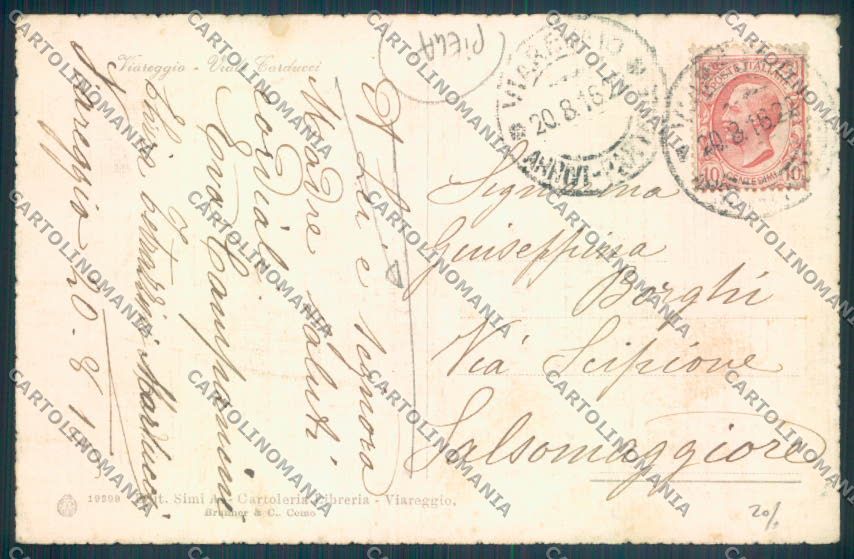 Viareggio - Viale Carducci
PIEGA
VIAREGGIO
20.8.16
POSTE ITALIANE
10 CENTESIMI 10
20.8.16
Signorina
Giuseppina
Borghi
Via Scipione
Salsomaggiore
A Lei e Signora
Madre saluti
cordiali
Eva Campanini
Viareggio 20. 8. 1
19299 - Edit. Simi A. - Cartoleria Libreria - Viareggio.
Brunner & C., Como
20/
CARTOLINOMANIA